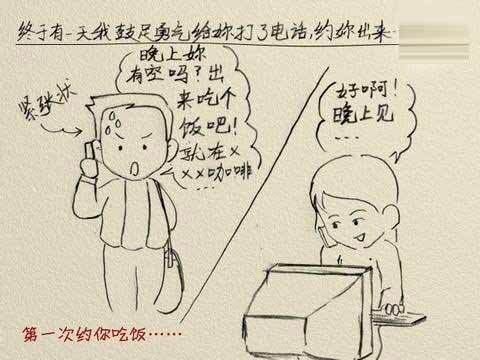 终于有一天我鼓足勇气给妳打了电话,约妳出来
晚上妳
有空吗?出
来吃个
饭吧!
就在×
××咖啡
...
紧张状
好啊!
晚上见
...
第一次约你吃饭……